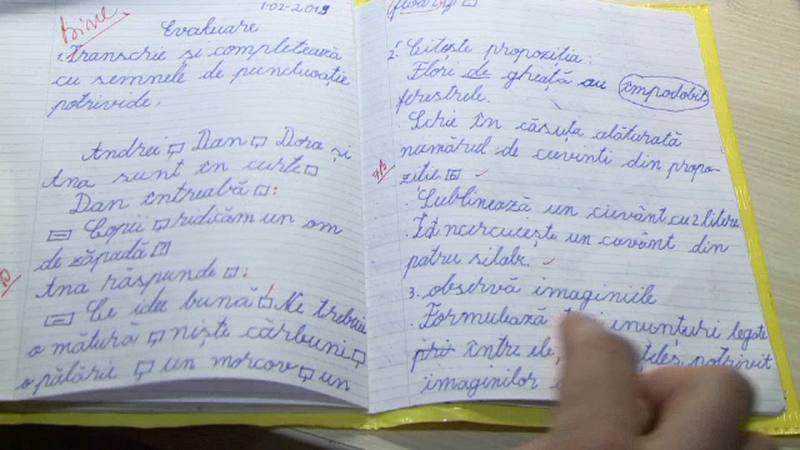 Bine
1-02-2019
Evaluare
Transcrie și completează
cu semnele de punctuație
potrivide.
Andrei □ Dan □ Dora și
Ana sunt în curte □
Dan întreabă □ :
□ Copii □ ridicăm un om
de zăpadă □
Ana răspunde □ :
□ Ce idee bună □ Ne trebuie
o mătură □ niște cărbuni □
o pălărie □ un morcov □ un
2. Citește propoziția:
Flori de gheață au împodobit
ferestrele.
Scrie în căsuța alăturată
numărul de cuvinti din propo-
ziție
Sublinează un cuvânt cu 2 litere
Încercuește un cuvânt din
patru silabe.
3. observă imaginiile
Formulează inunțuri legate
pri între ele potrivit
imaginilor